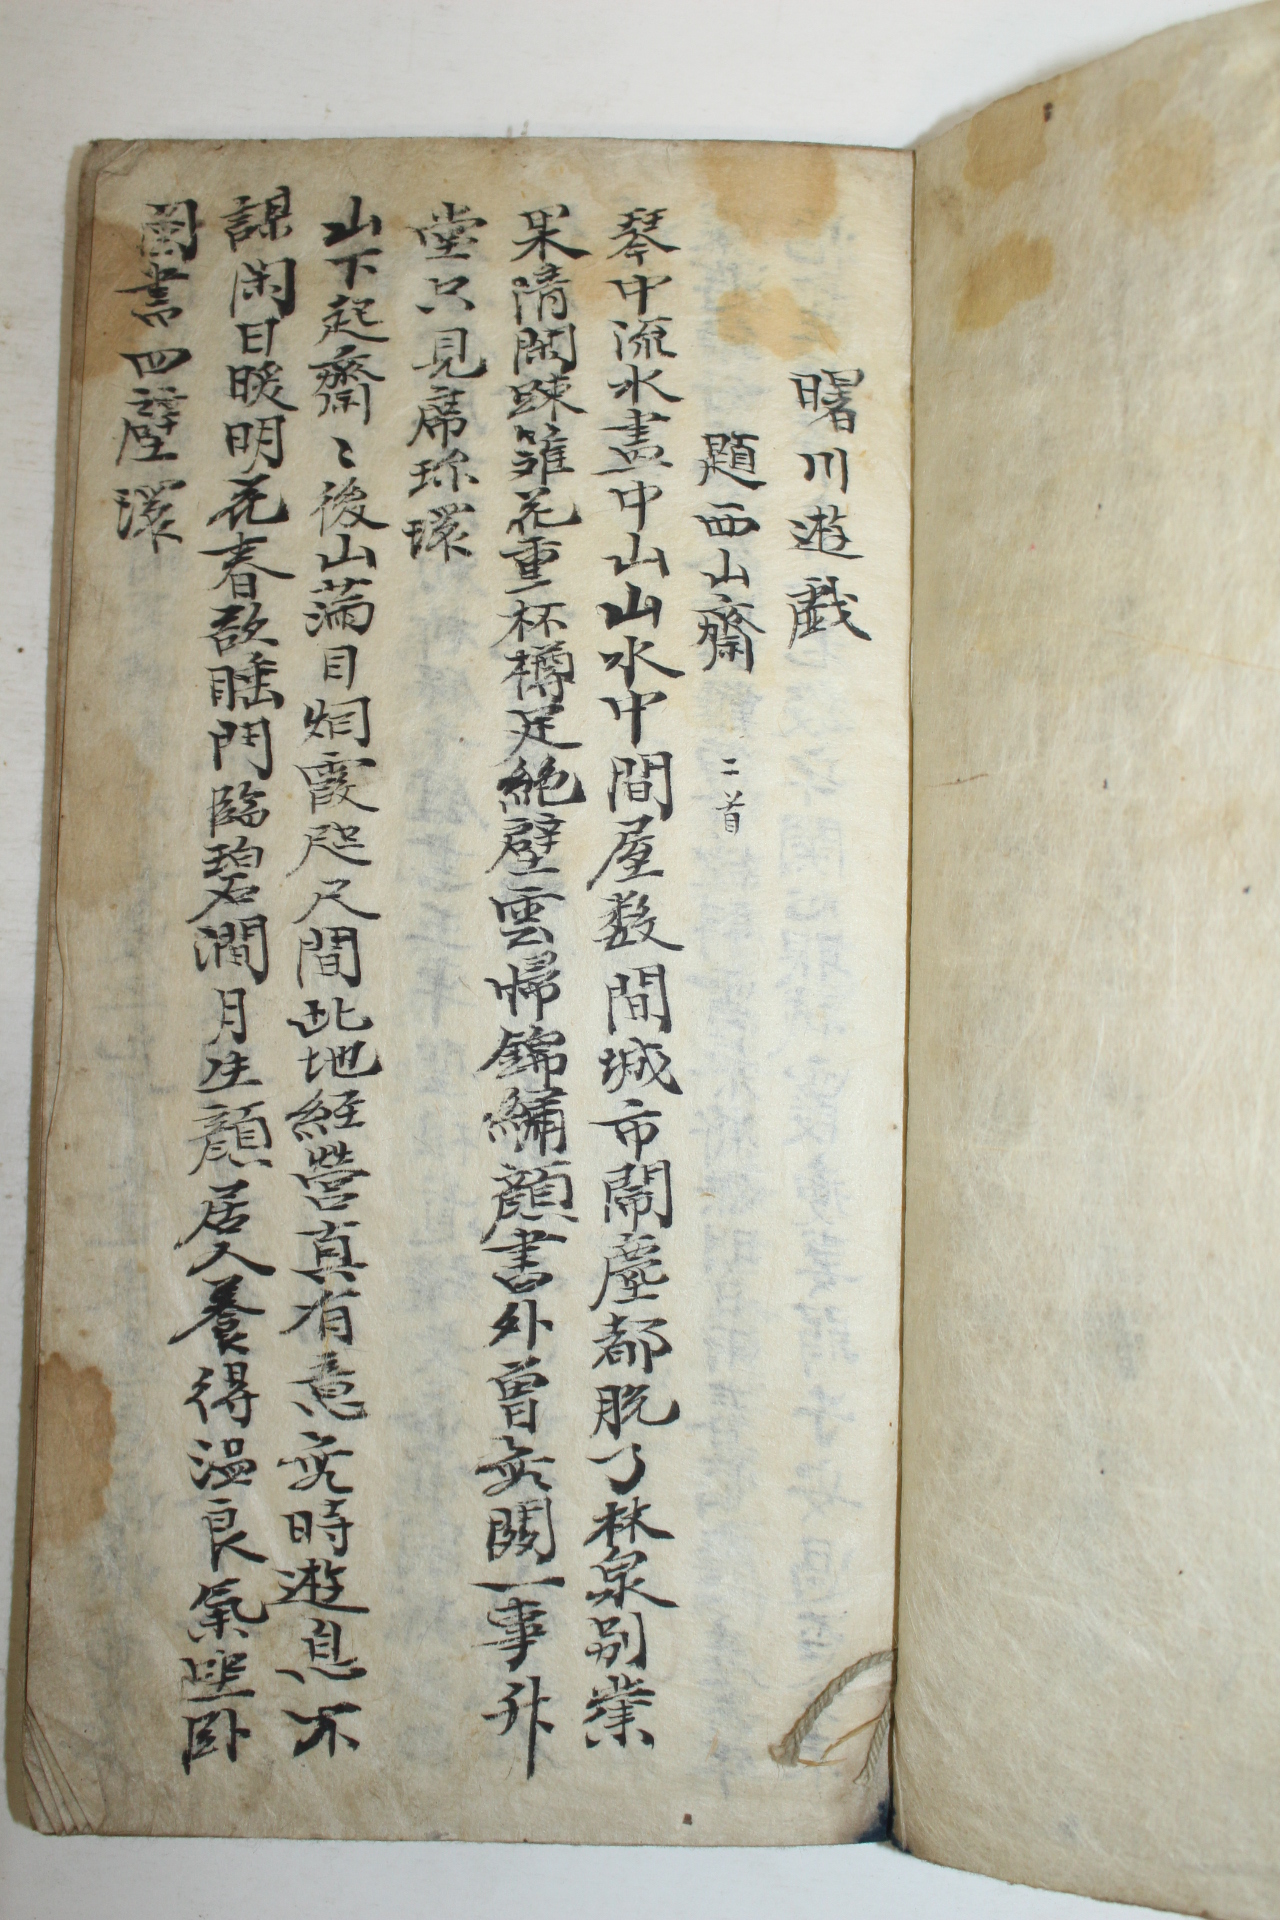 曙川遊戱
題西山齋 二首
琴中流水畫中山山水中間屋数間城市鬧塵都脫了林泉別業
果淸閑踈籬花重杯樽足絶壁雲帰錦繡顔書外曾無関一事升
堂只見席珎環
山下起齋〻後山滿目烟霞咫尺間此地経營真有意無時遊息不
謀閑日暖明花春欲睡門臨碧澗月生顔居人養得温良氣坐卧
圖書四壁環